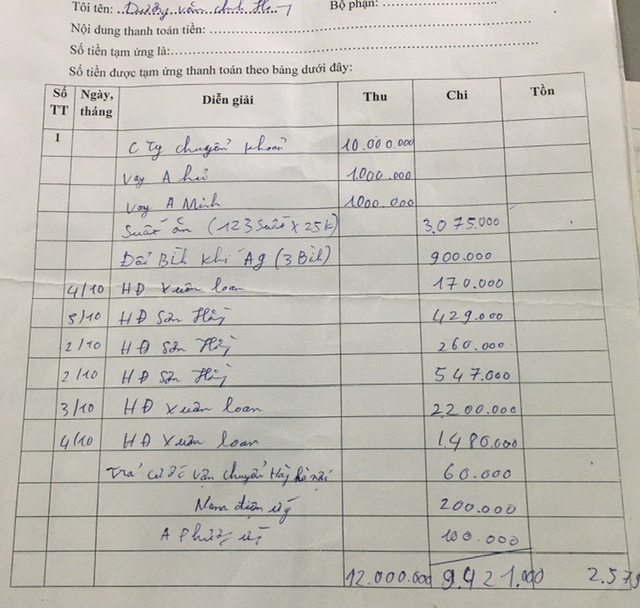 Tôi tên: Dương văn Bộ phận:
Nội dung thanh toán tiền:
Số tiền tạm ứng là:
Số tiền được tạm ứng thanh toán theo bảng dưới đây:
Số TT Ngày, tháng Diễn giải Thu Chi Tồn
1 C Ty chuyển khoản 10.000.000
Vay A 1.000.000
Vay A Minh 1000.000
Suất ăn (123 Suất x 25k) 3.075.000
Đổi Bình khí Ag (3 Bình) 900.000
4/10 HĐ Xuân loan 170.000
5/10 HĐ Sơn 429.000
2/10 HĐ Sơn 260.000
2/10 HĐ Sơn 547.000
3/10 HĐ Xuân loan 2200.000
4/10 HĐ Xuân loan 1.480.000
Trả vận chuyển hà nội 60.000
điện 200.000
A 100.000
12.000.000 9.421.000 2.579